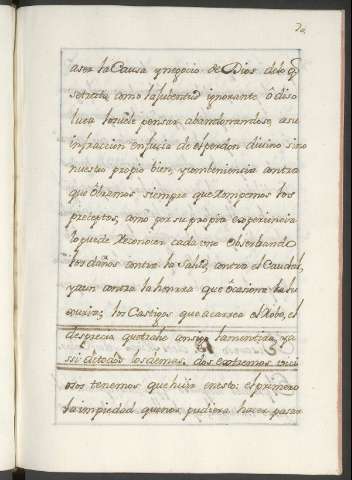 aser la Causa y negocio de Dios delo q̃
setrata, como la Jubentud ignorante ô diso
luta lo suele pensar abandonandose, asu
infraccion enfucia de el perdon divino sino
nuestro propio bien, y combeniencia contra
que ôbremos siempre que rompemos los
preceptos, como por su propia experiencia
lo puede reconocer cada uno Obserbando
los daños contra la Salud, contra el Caudal,
y aun contra la honrra que ôcasiona la lu
xuria; los Castigos que acarrea el Robo, el
desprecio quetrahe consigo la mentira, y a
ssi detodos los demas. dos extremos vici
osos tenemos que huir en esto: el primero
la impiedad que nos pudiera hacer pasar